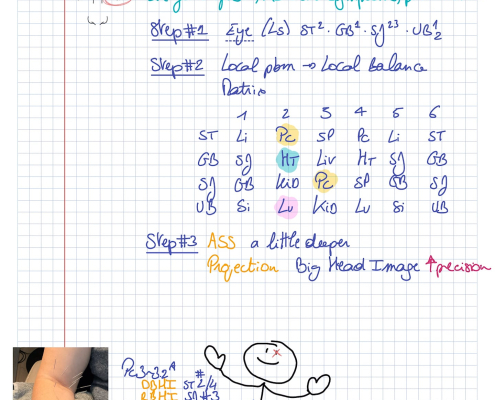 Step#1 Eye (Ls) ST² · GB¹ · SJ²³ · UB¹₂
Step#2 Local pbm → Local balance
Matrix
1 2 3 4 5 6
ST Li Pc SP Pc Li ST
GB SJ HT Liv HT SJ GB
SJ GB KiD Pc SP GB SJ
UB Si Lu KiD Lu Si UB
Step#3 ASS a little deeper
Projection Big Head Image ↑precision
#
DBHI ST 2/4
RBHI SJ #3